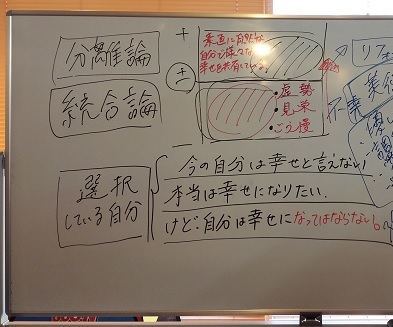 分離論
統合論
+
±
素直に自然な
自分で様々な
幸せを共有している。
・虚勢
・見栄
・ごう慢
リフォ
不幸
選択
している自分
今の自分は幸せと言えない
本当は幸せになりたい。
けど、自分は幸せになってはならない。